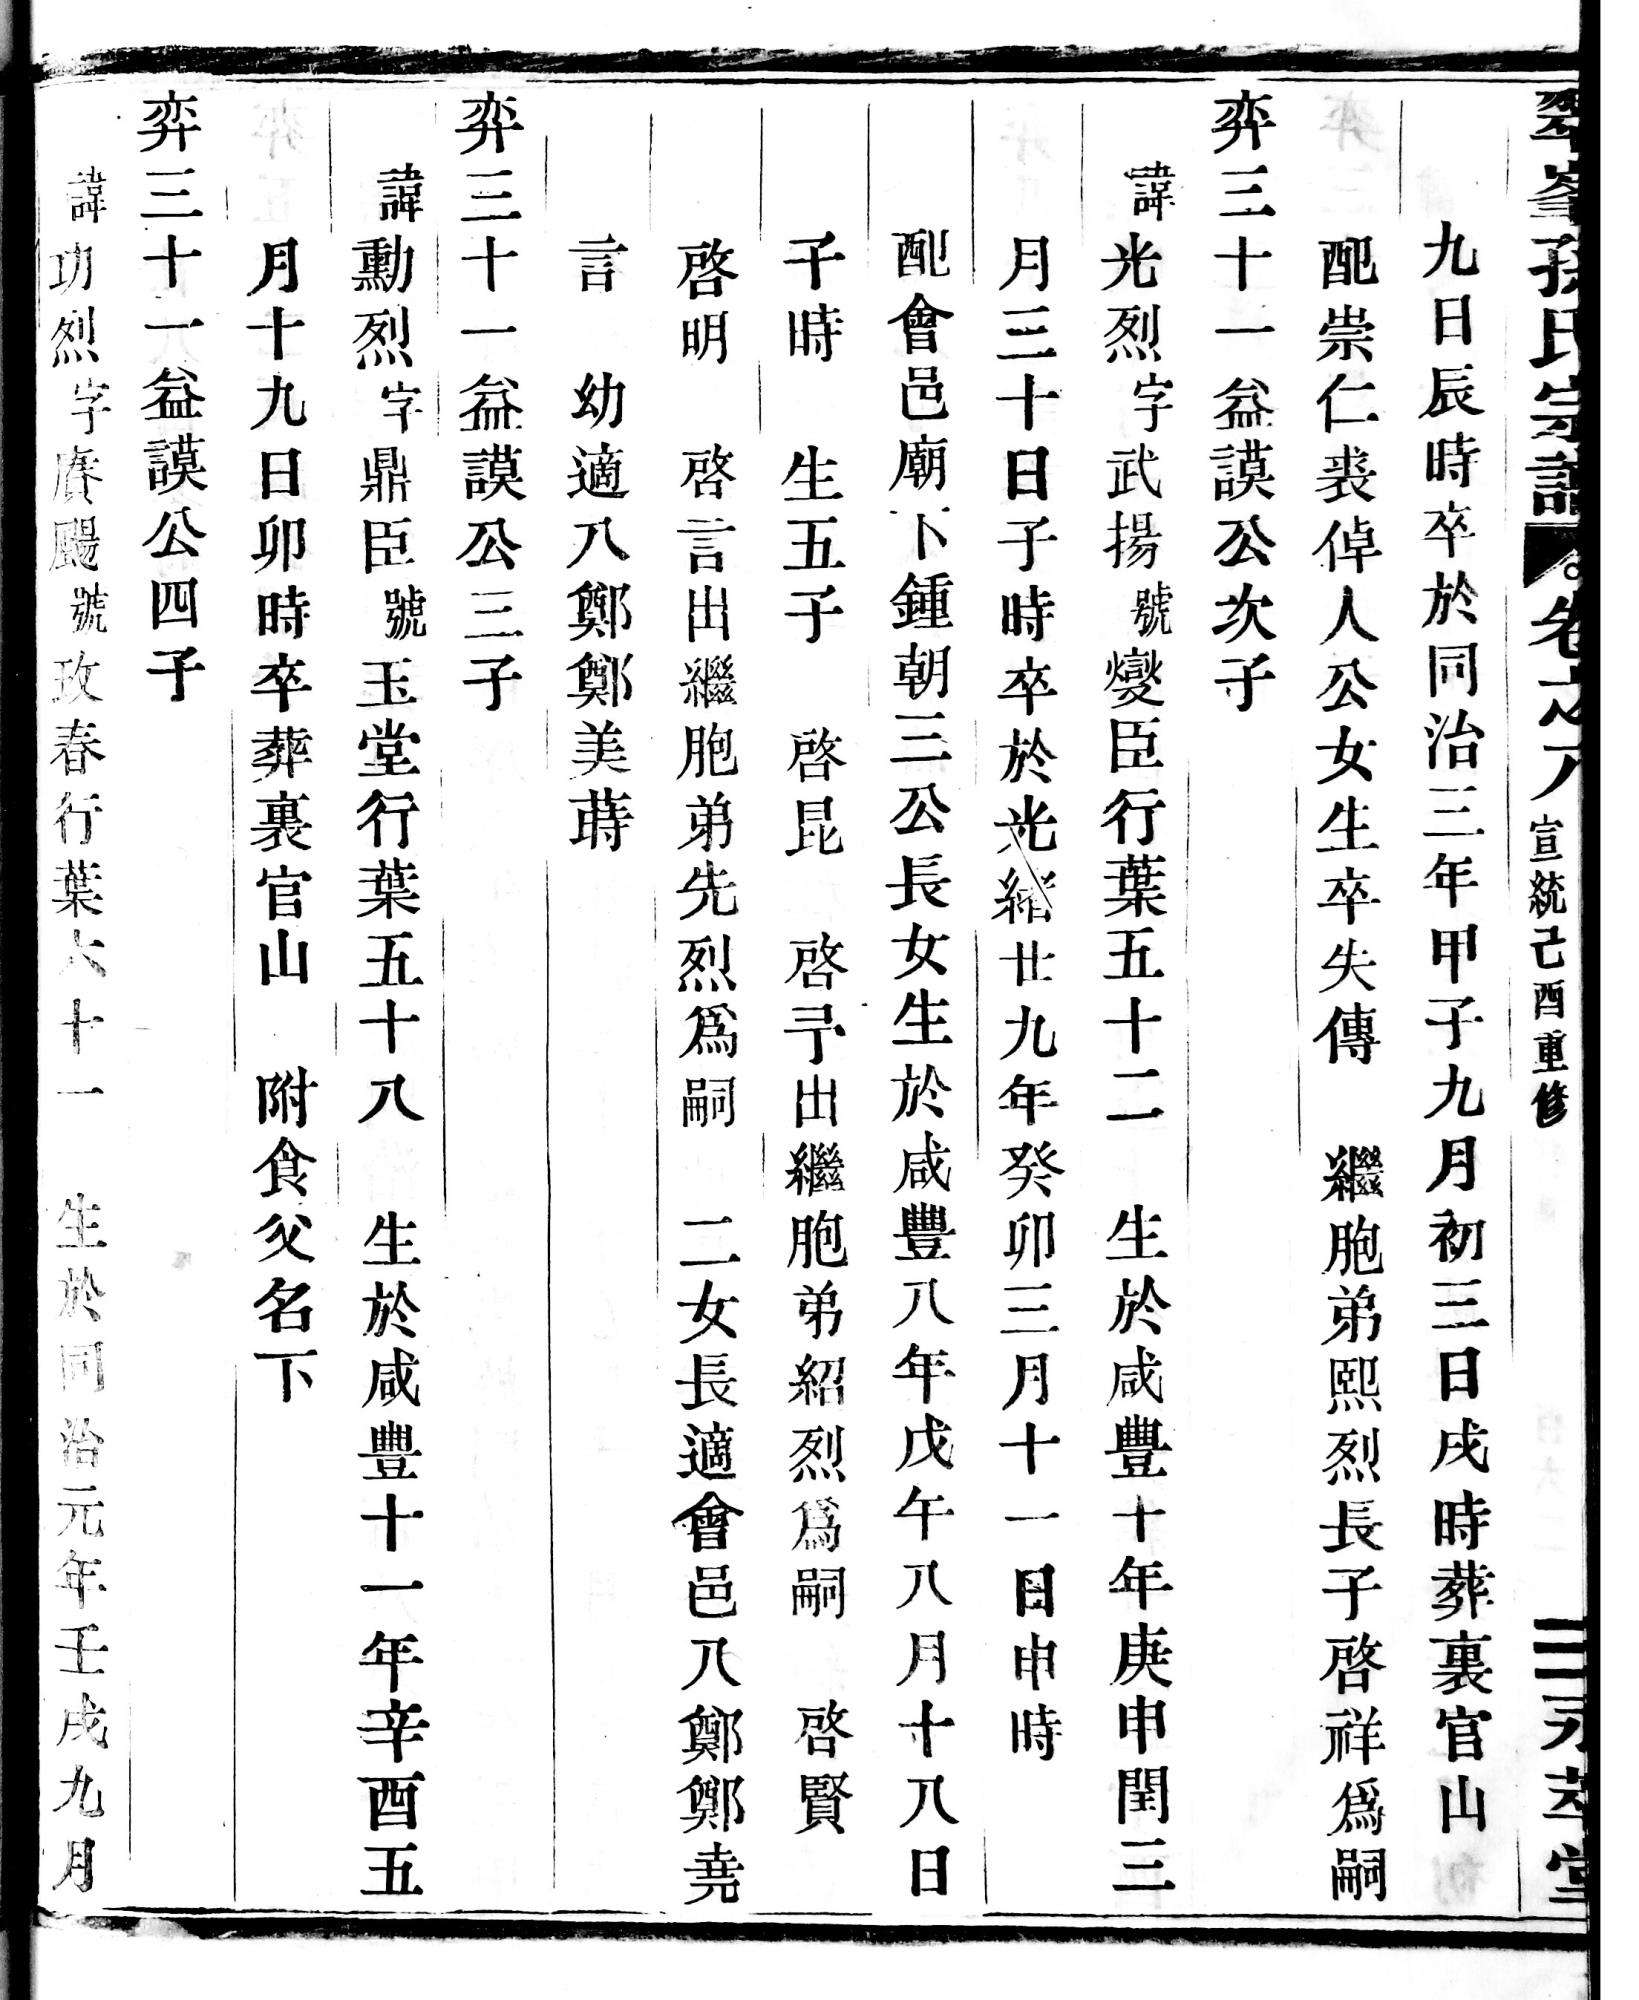 翠峯孫氏宗譜 卷之八 宣統己酉重修 三 永萃堂
九日辰時卒於同治三年甲子九月初三日戌時葬裏官山
配崇仁裘倬人公女生卒失傳 繼胞弟熙烈長子啓祥爲嗣
弈三十一益謨公次子
諱光烈字武揚號燮臣行葉五十二 生於咸豐十年庚申閏三
月三十日子時卒於光緒廿九年癸卯三月十一日申時
配會邑廟下鍾朝三公長女生於咸豐八年戊午八月十八日
千時 生五子 啓昆 啓予出繼胞弟紹烈爲嗣 啓賢
啓明 啓言出繼胞弟先烈爲嗣 二女長適會邑八鄭鄭堯
言 幼適八鄭鄭美蒔
弈三十一益謨公三子
諱勳烈字鼎臣號玉堂行葉五十八 生於咸豐十一年辛酉五
月十九日卯時卒葬裏官山 附食父名下
弈三十一益謨公四子
諱功烈字賡颺號玫春行葉六十一 生於同治元年壬戌九月